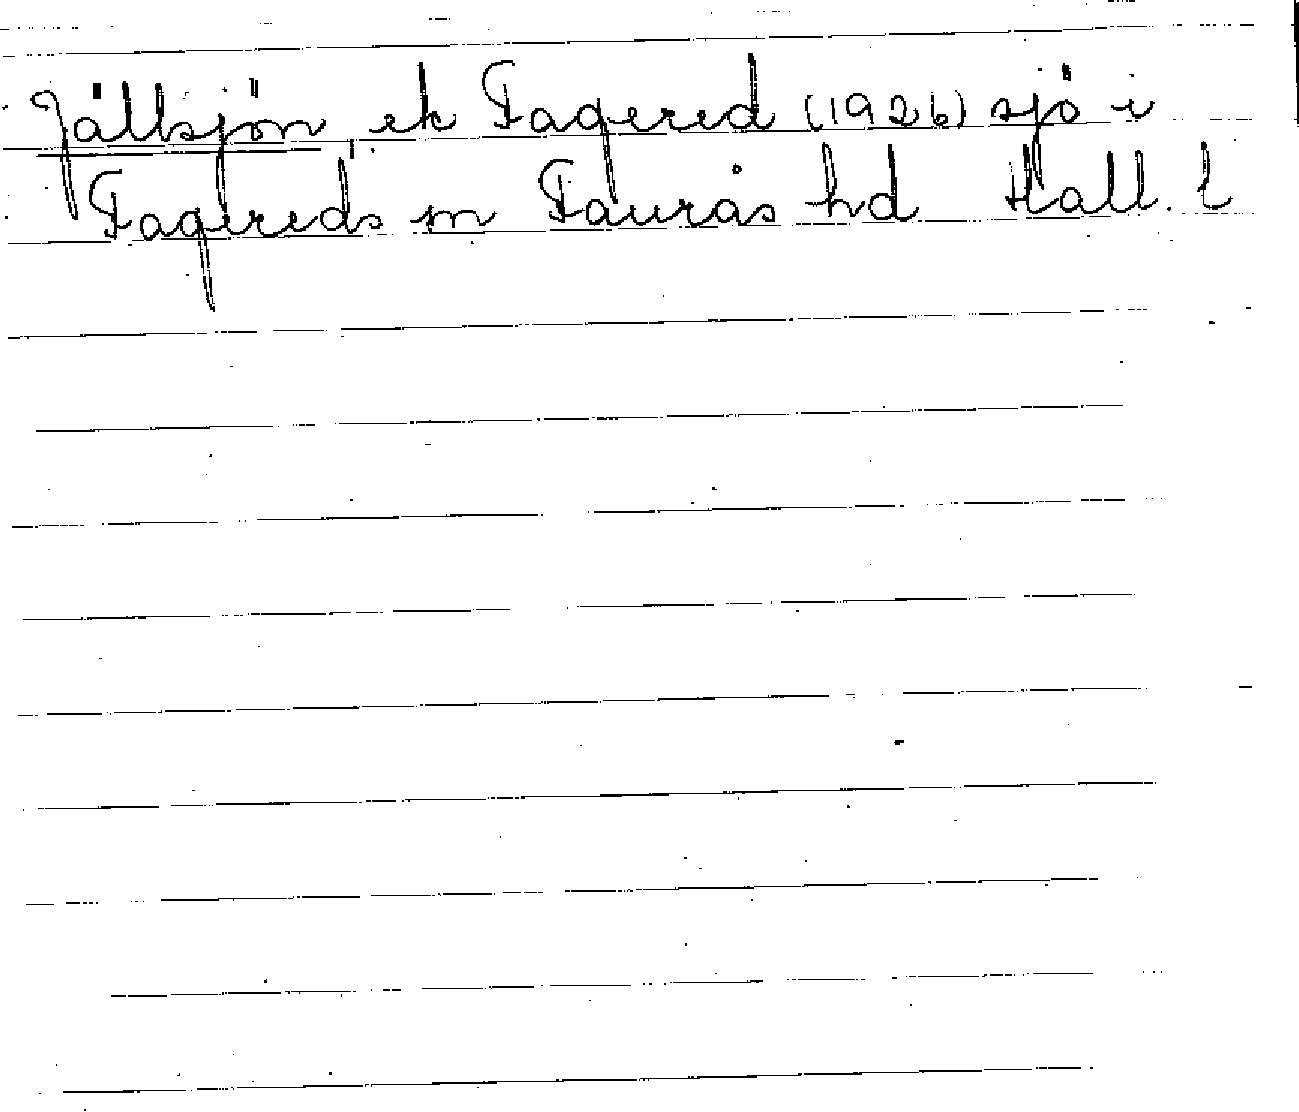 Jälksjön, ek Fagered (1926) sjö i
Fagereds sn Faurås hd Hall. l